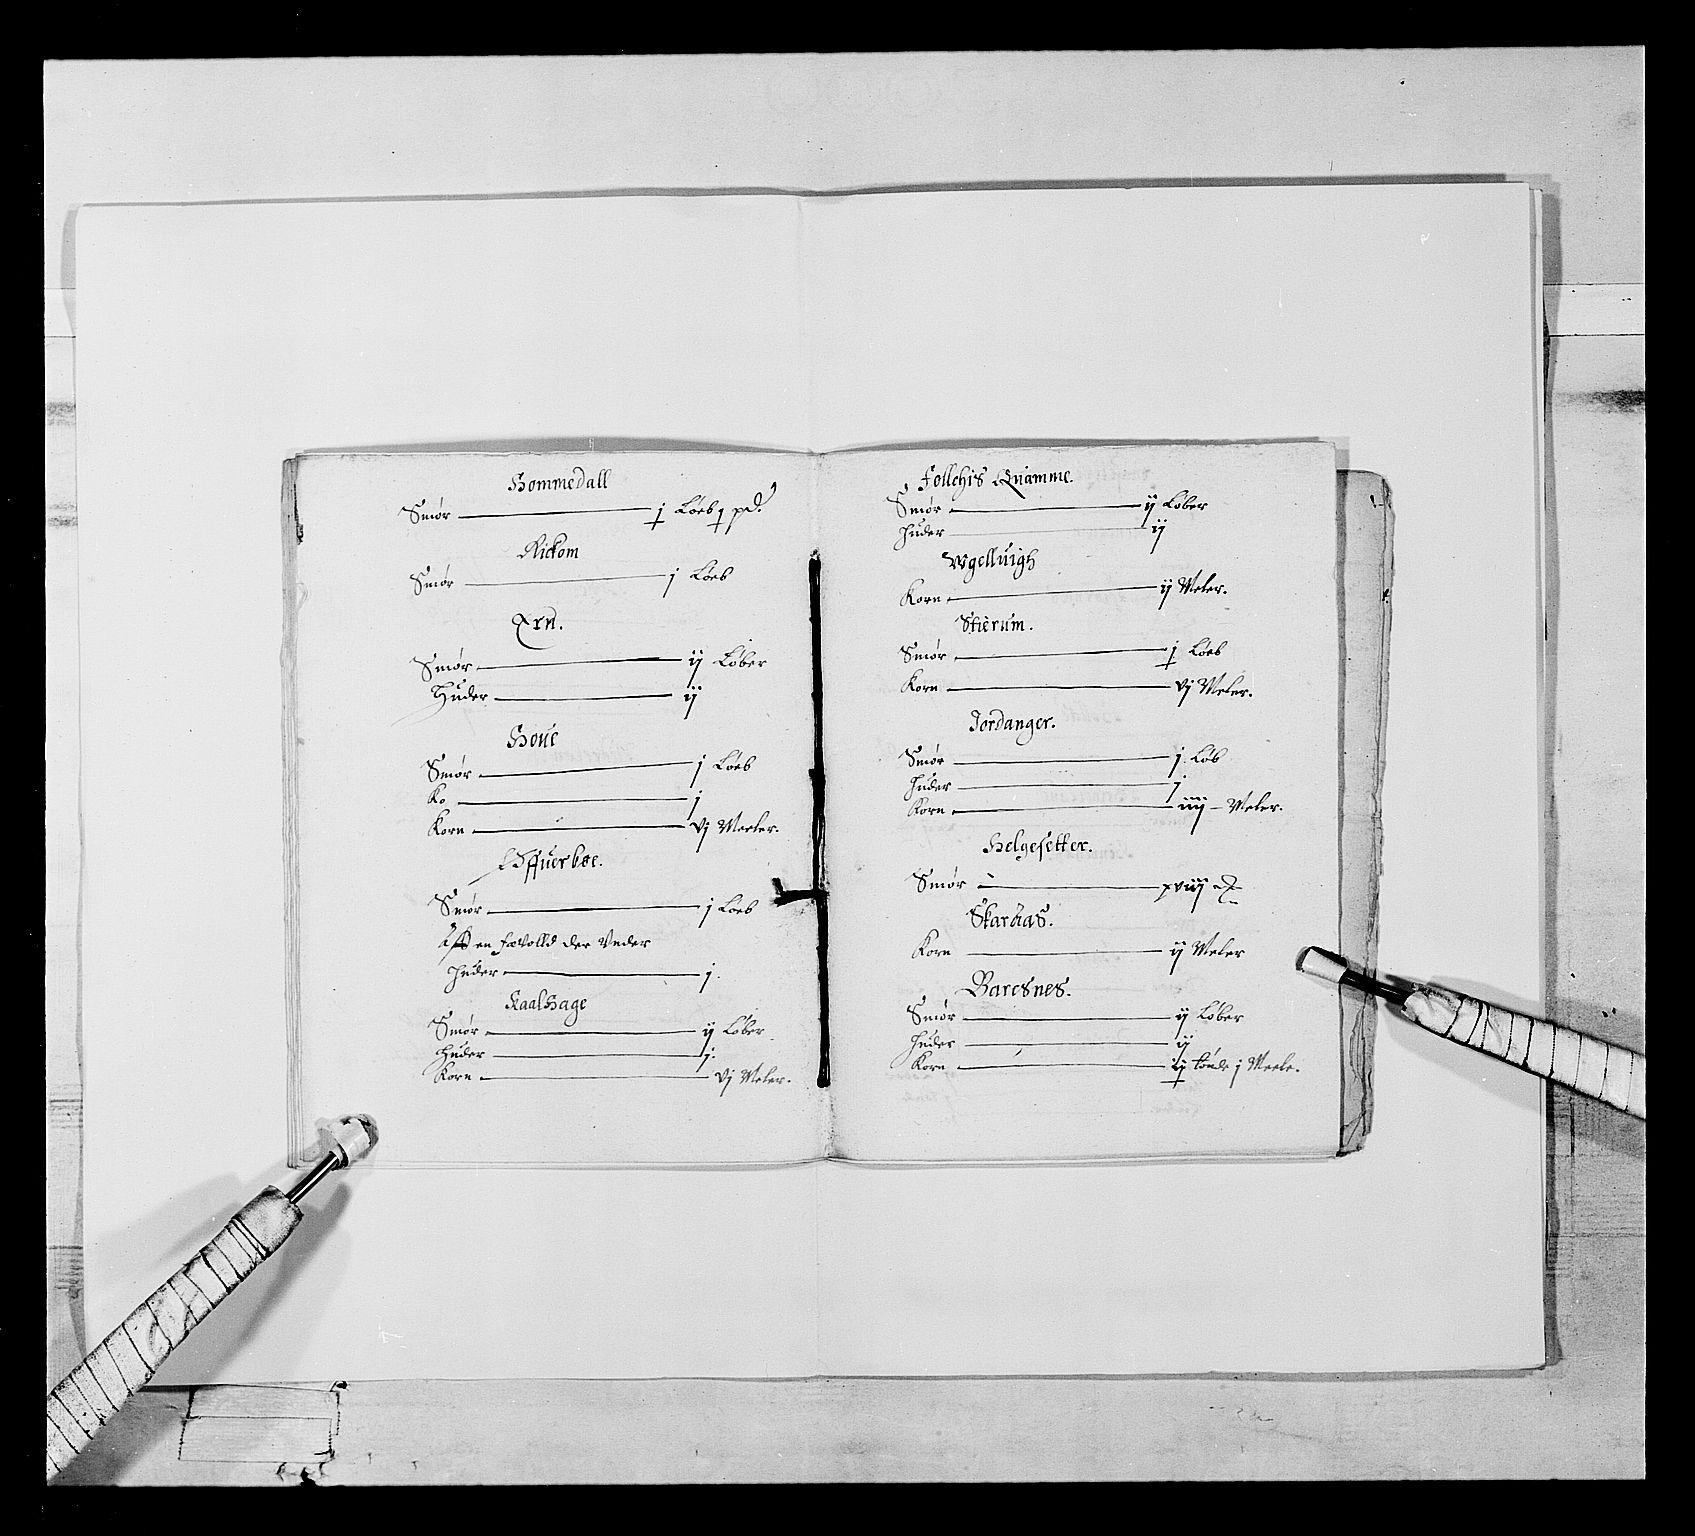 Hommedall
Smør j Løeb j pd.
Rickom
Smør j Løeb
Ern.
Smør ij Løber
Huder ij
Houe
Smør j Løeb
Ko j
Korn vj Meeler.
Offuerboe.
Smør j Løeb
Aff en fævolld der Vnder
Huder j.
Kaalhage
Smør ij Løber
Huder j.
Korn vj Meler.
Follchis Quamme.
Smør ij Løber
Huder ij
Wgelluigh
Korn ij Meler.
Stierum.
Smør j Løeb
Korn vj Meler.
Jordanger.
Smør j. Løb
Huder j
Korn iiij Meler.
Helgesetter.
Smør xviij
Skaruas.
Korn ij Meler
Baresnes.
Smør ij Løber
Huder ij
Korn ij tønde j Meele.